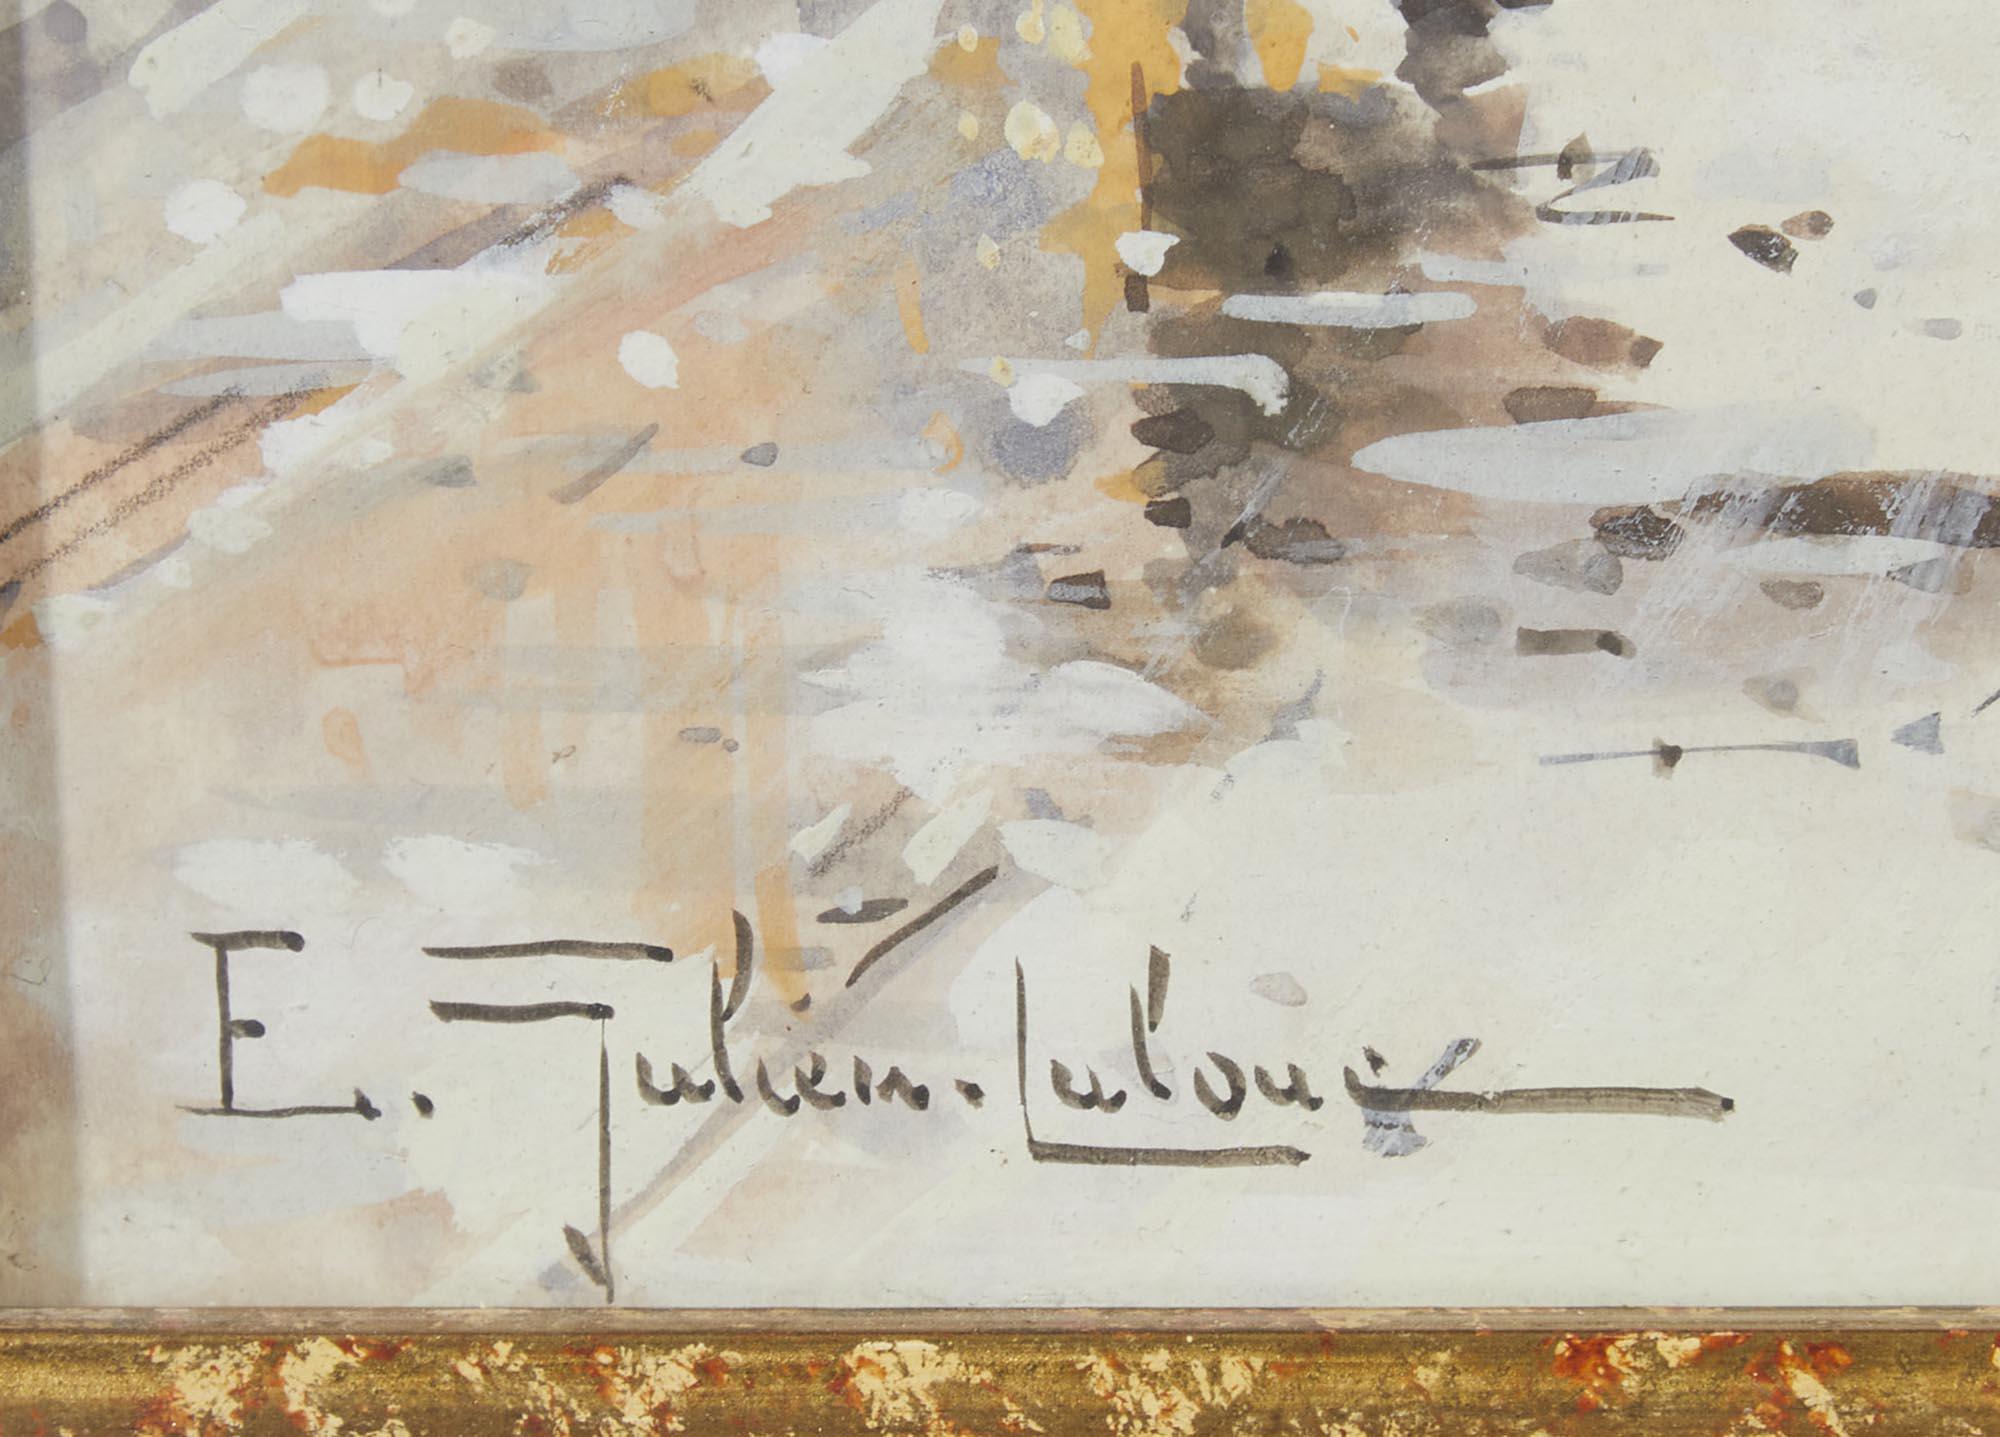 E. Julien-Laloue